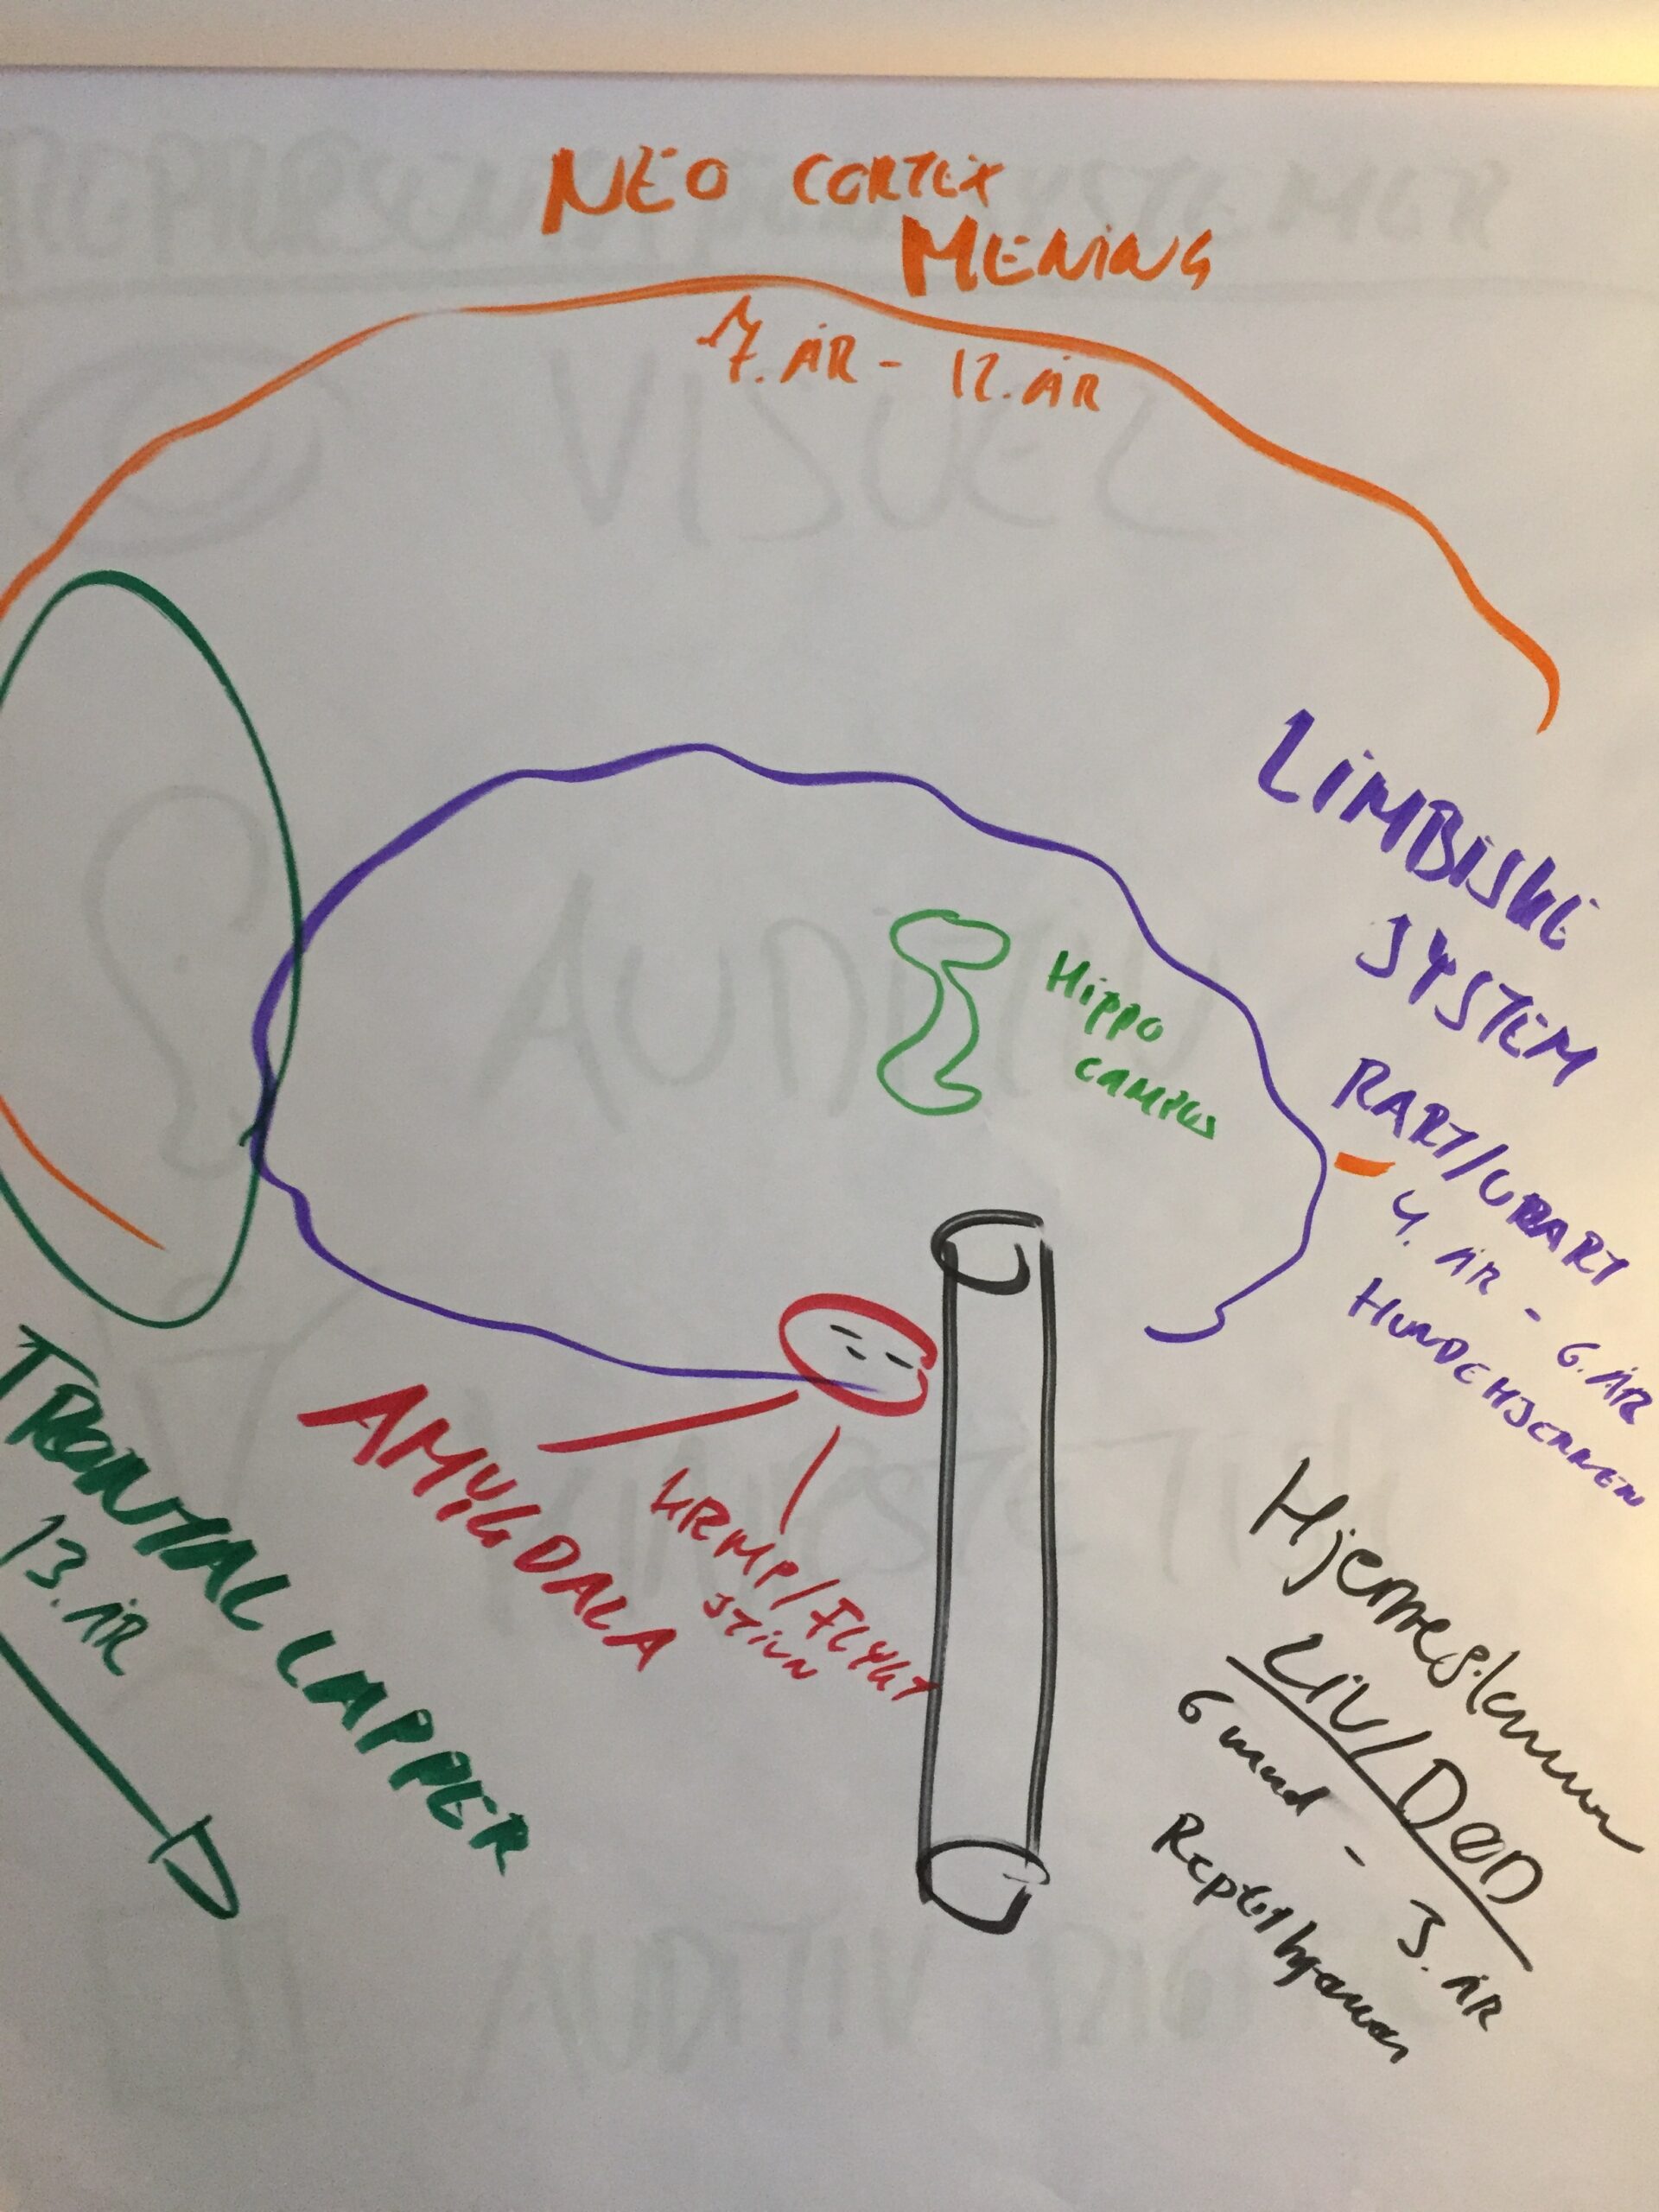 NEO CORTEX
MENING
7. ÅR - 12. ÅR
LIMBISKE
SYSTEM
RART/URART
4. ÅR - 6. ÅR
HUNDEHJERNEN
Hippo
campus
AMYGDALA
KAMP/FLYGT
STIVN
FRONTAL LAPPER
13. ÅR
Hjernestamme
LIV/DØD
6 mnd - 3. ÅR
VISUEL